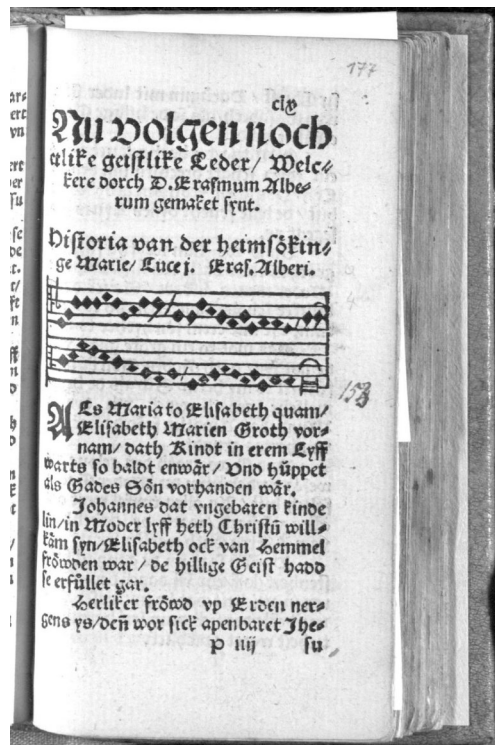 177
clv
Nu volgen noch
etlike geistlike Leder/ Welc⸗
kere dorch D. Erasmum Albe⸗
rum gemaket synt.
Historia van der heimsökin⸗
ge Marie/ Luce j. Eras. Alberi.
ALs Maria to Elisabeth quam/
Elisabeth Marien Groth vor⸗
nam/ dath Kindt in erem Lyff
warts so baldt enwār/ Vnd hüppet
als Gades Sön vorhanden wār.
Johannes dat vngebaren kinde
lin/in Moder lyff heth Christū will⸗
kām syn/Elisabeth ock van Hemmel
fröwden war / de hillige Geist hadd
se erfüllet gar.
Herliker fröwd vp Erden ner⸗
gens ys/deñ wor sick apenbaret Jhe⸗
P iiij su